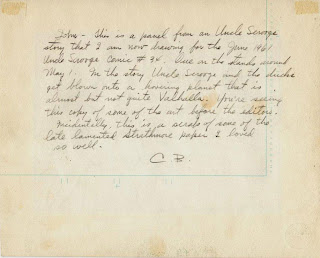 John - this is a panel from an Uncle Scrooge
story that I am now drawing for the June 1961
Uncle Scrooge Comic # 34. Due on the stands around
May 1. In the story Uncle Scrooge and the ducks
get blown onto a hovering planet that is
almost but not quite Valhalla. You're seeing
this copy of some of the art before the editors.
Incidentally, this is a scrap of some of the
late lamented Strathmore paper I loved
so well.
C B.